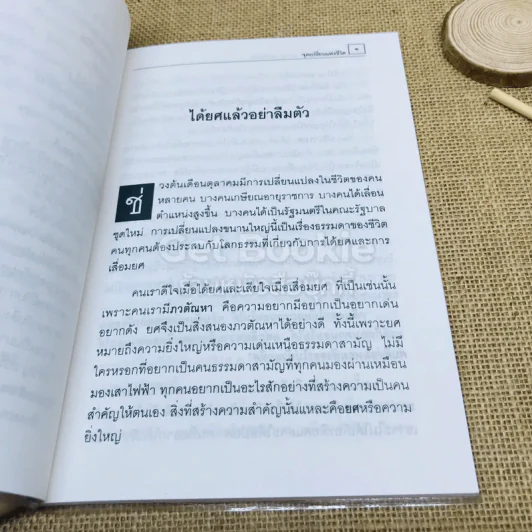 จุดเปลี่ยนแห่งชีวิต
ได้ยศแล้วอย่าลืมตัว
ช่วงต้นเดือนตุลาคมมีการเปลี่ยนแปลงในชีวิตของคน
หลายคน บางคนเกษียณอายุราชการ บางคนได้เลื่อน
ตำแหน่งสูงขึ้น บางคนได้เป็นรัฐมนตรีในคณะรัฐบาล
ชุดใหม่ การเปลี่ยนแปลงขนานใหญ่นี้เป็นเรื่องธรรมดาของชีวิต
คนทุกคนต้องประสบกับโลกธรรมที่เกี่ยวกับการได้ยศและการ
เสื่อมยศ
คนเราดีใจเมื่อได้ยศและเสียใจเมื่อเสื่อมยศ ที่เป็นเช่นนั้น
เพราะคนเรามีภวตัณหา คือความอยากมีอยากเป็นอยากเด่น
อยากดัง ยศจึงเป็นสิ่งสนองภวตัณหาได้อย่างดี ทั้งนี้เพราะยศ
หมายถึงความยิ่งใหญ่หรือความเด่นเหนือธรรมดาสามัญ ไม่มี
ใครหรอกที่อยากเป็นคนธรรมดาสามัญที่ทุกคนมองผ่านเหมือน
มองเสาไฟฟ้า ทุกคนอยากเป็นอะไรสักอย่างที่สร้างความเป็นคน
สำคัญให้ตนเอง สิ่งที่สร้างความสำคัญนั้นแหละคือยศหรือความ
ยิ่งใหญ่
Get Bookie